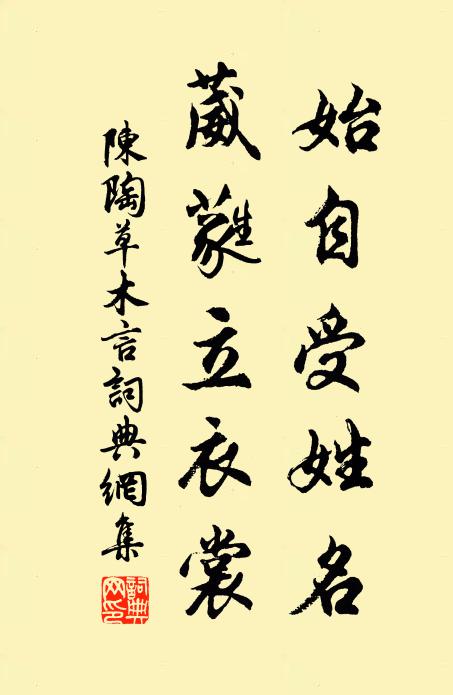 始自受姓名
葳蕤立衣裳
陳陶草木言詞典網集
詞典網印